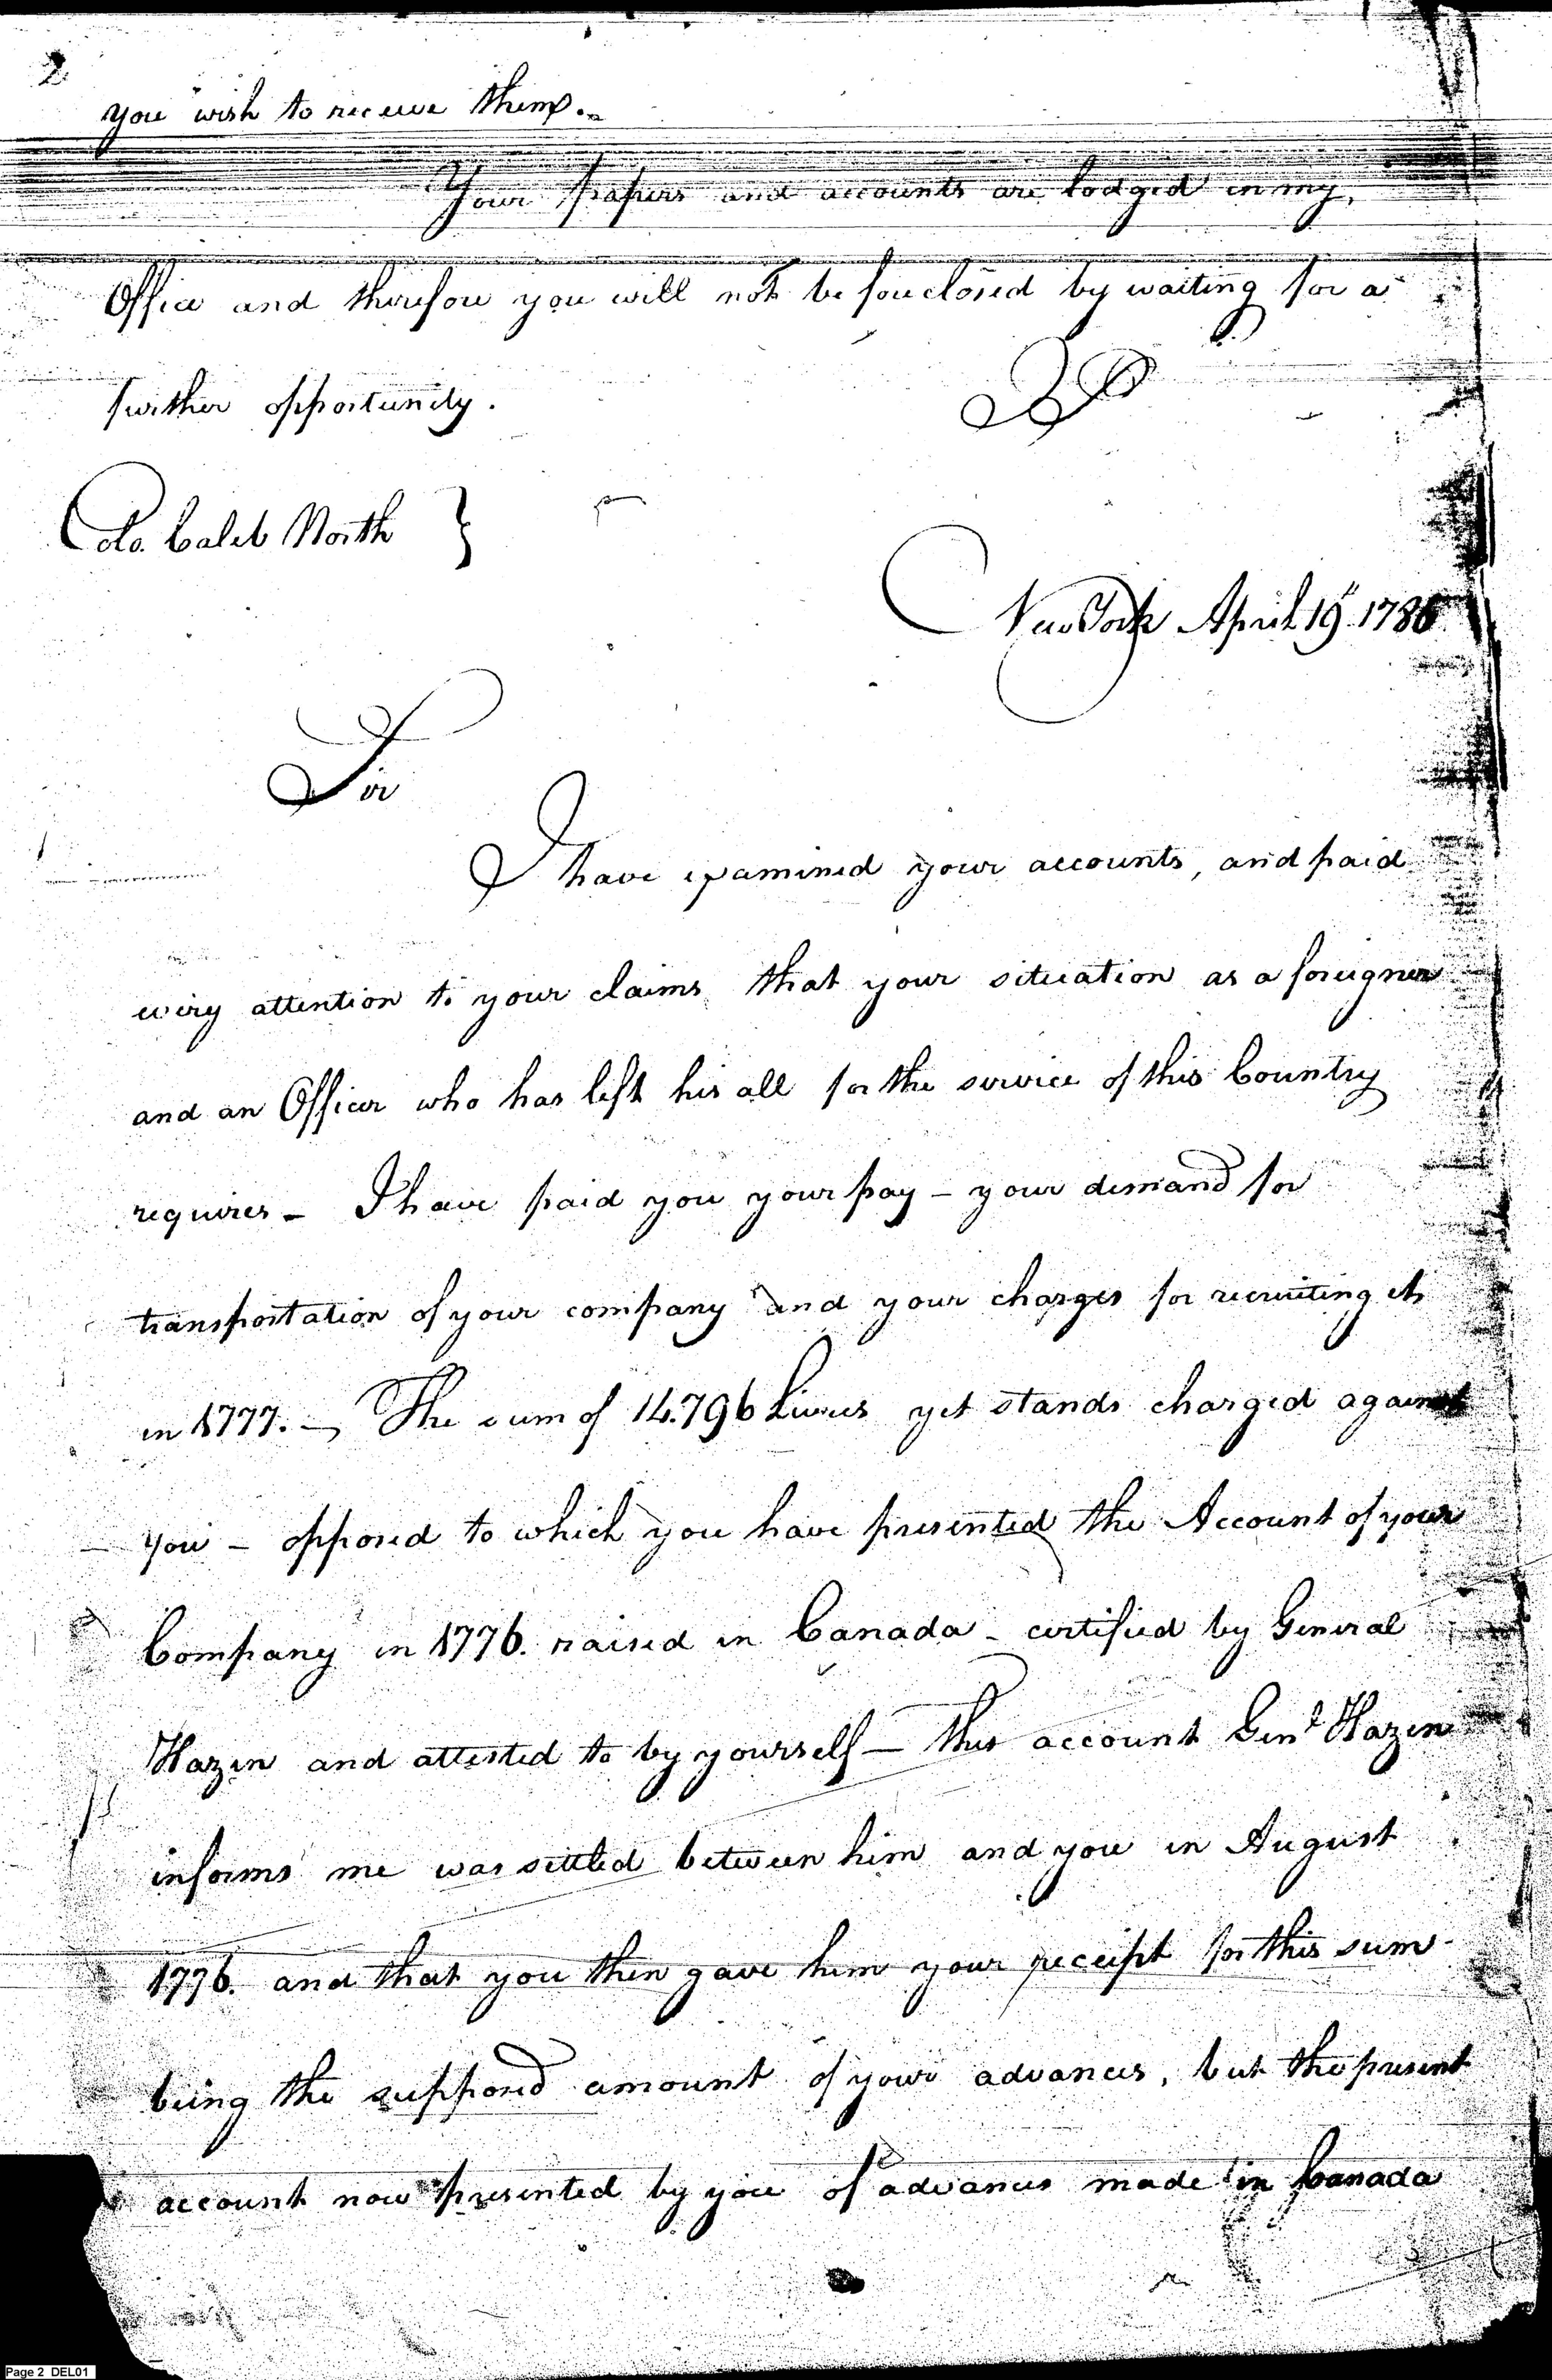 2
you wish to receive them.
Your papers and accounts are lodged in my
Office and therefore you will not be foreclosed by waiting for a
further opportunity.
Colo. Caleb North }
New York April 19th 1786
Sir
I have examined your accounts, and paid
every attention to your claims that your situation as a foreigner
and an Officer who has left his all for the service of this Country
requires – I have paid you your pay – your demand for
transportation of your company and your charges for recruiting it
in 1777. – The sum of 14.796 Livres yet stands charged against
you – opposed to which you have presented the Account of your
Company in 1776. raised in Canada – certified by General
Hazen and attested to by yourself – this account Genl Hazen
informs me was settled between him and you in August
1776. and that you then gave him your receipt for this sum
being the supposed amount of your advances, but the present
account now presented by you of advances made in Canada
Page 2 DEL01